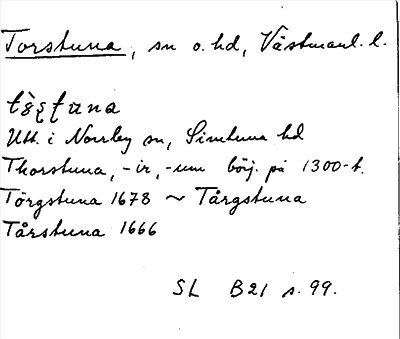 Torstuna, sn o. hd, Västmanl. l.
Utt. i Norrby sn, Simtuna hd
Thorstuna, -ir, -um börj. på 1300-t.
Törgstuna 1678 ~ Tårgstuna
Tårstuna 1666
SL B21 s. 99.